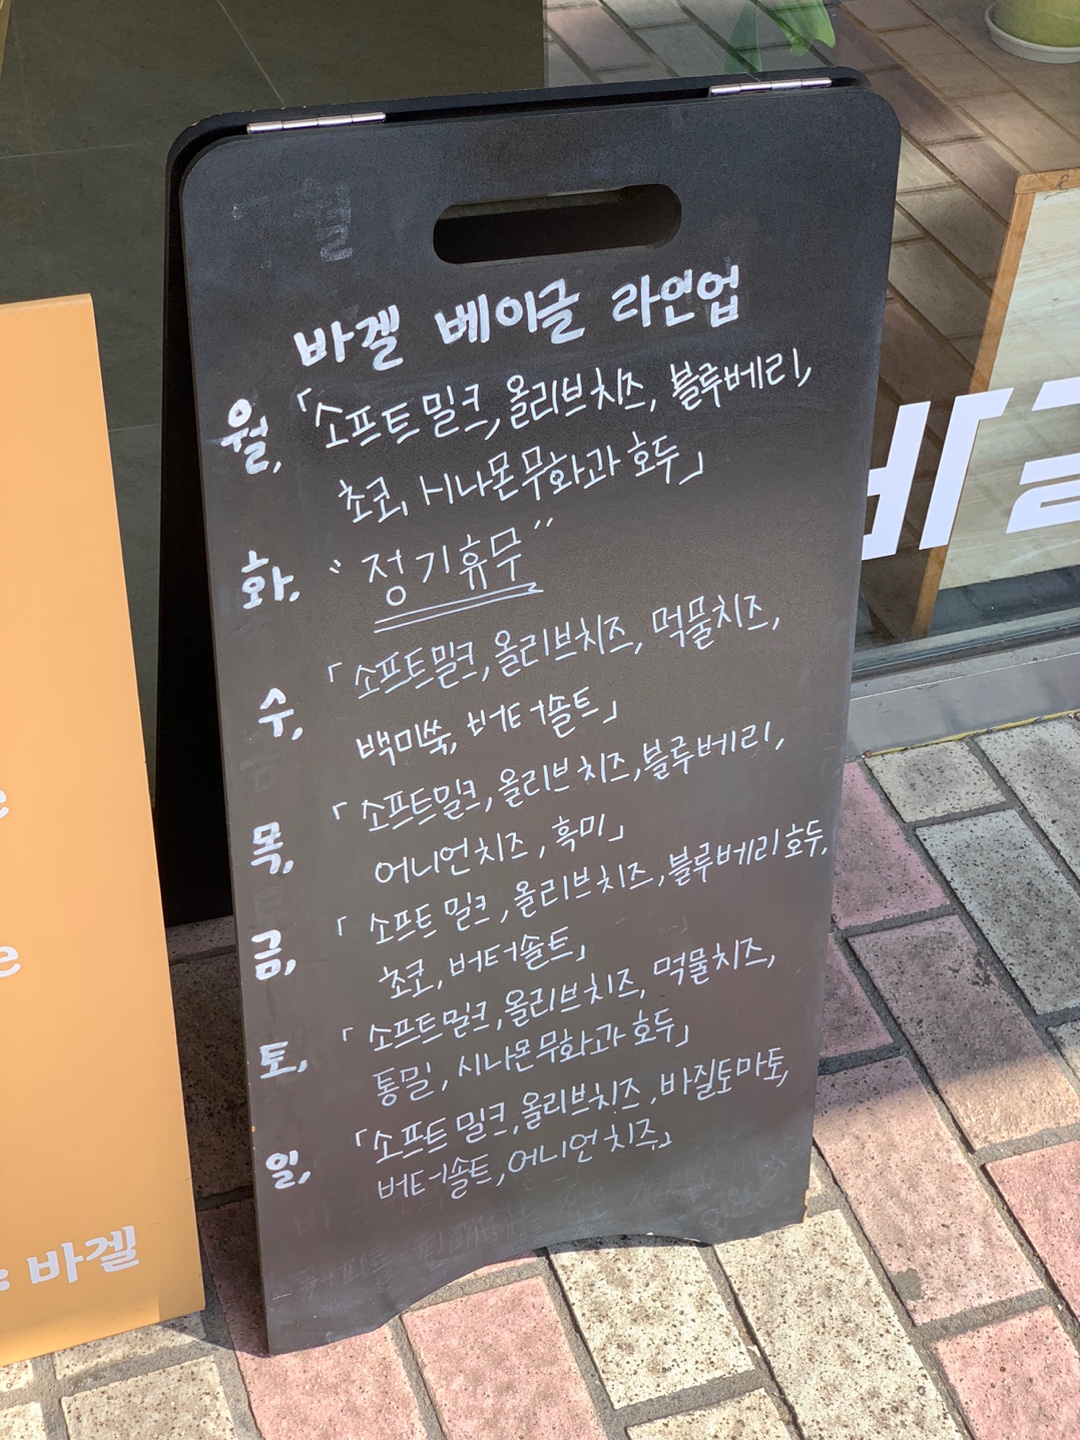 바겔 베이글 라인업
월, 「소프트밀크, 올리브치즈, 블루베리,
초코, 시나몬무화과호두」
화, “정기휴무”
수, 「소프트밀크, 올리브치즈, 먹물치즈,
백미쑥, 버터솔트」
목, 「소프트밀크, 올리브치즈, 블루베리,
어니언치즈, 흑미」
금, 「소프트밀크, 올리브치즈, 블루베리호두,
초코, 버터솔트」
토, 「소프트밀크, 올리브치즈, 먹물치즈,
통밀, 시나몬무화과호두」
일, 「소프트밀크, 올리브치즈, 바질토마토,
버터솔트, 어니언치즈」
: 바겔
바겔
e
e